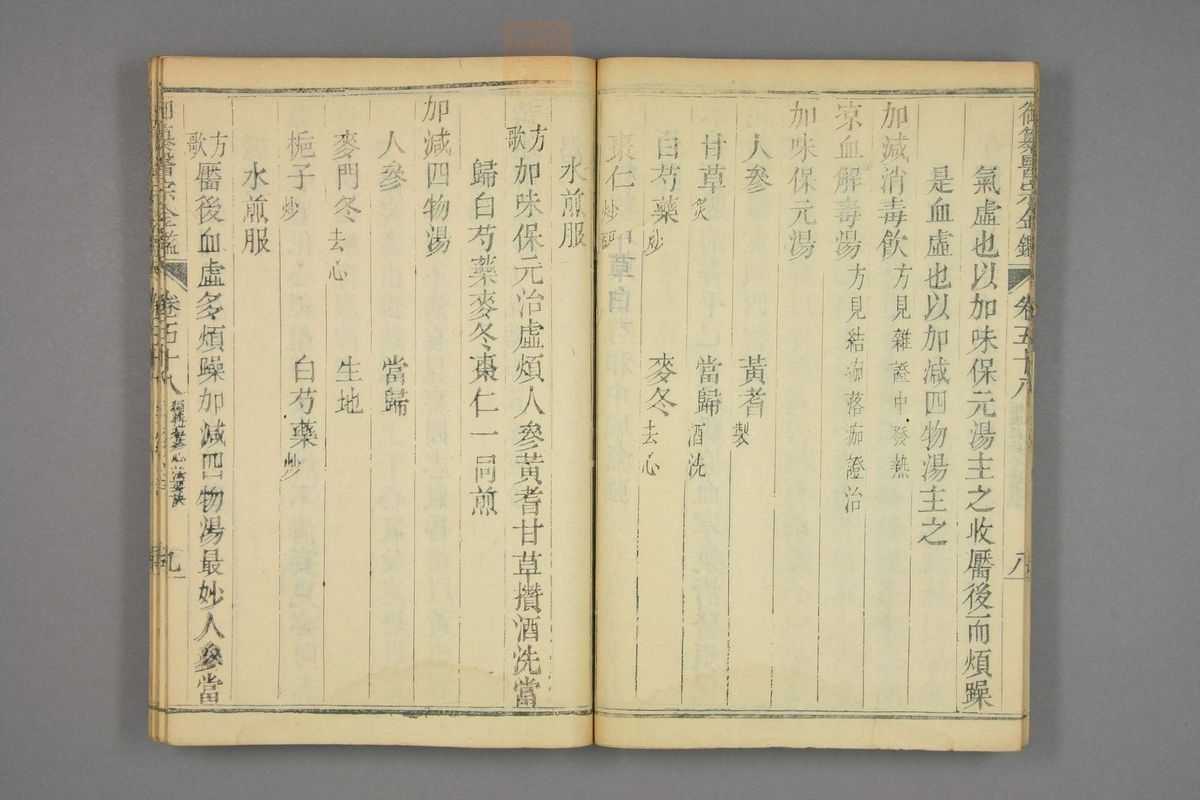 御纂醫宗金鑑 卷五十八 八
氣虛也以加味保元湯主之收靨後而煩躁
是血虛也以加減四物湯主之
加減消毒飲 方見雜證中發熱
涼血解毒湯 方見結痂落痂證治
加味保元湯
人參 黃耆 製
甘草 炙 當歸 酒洗
白芍藥 炒 麥冬 去心
棗仁 炒研
水煎服
方歌 加味保元治虛煩人參黃耆甘草攢酒洗當
歸白芍藥麥冬棗仁一同煎
加減四物湯
人參 當歸
麥門冬 去心 生地
梔子 炒 白芍藥 炒
水煎服
方歌 靨後血虛多煩躁加減四物湯最妙人參當
御纂醫宗金鑑 卷五十八 九